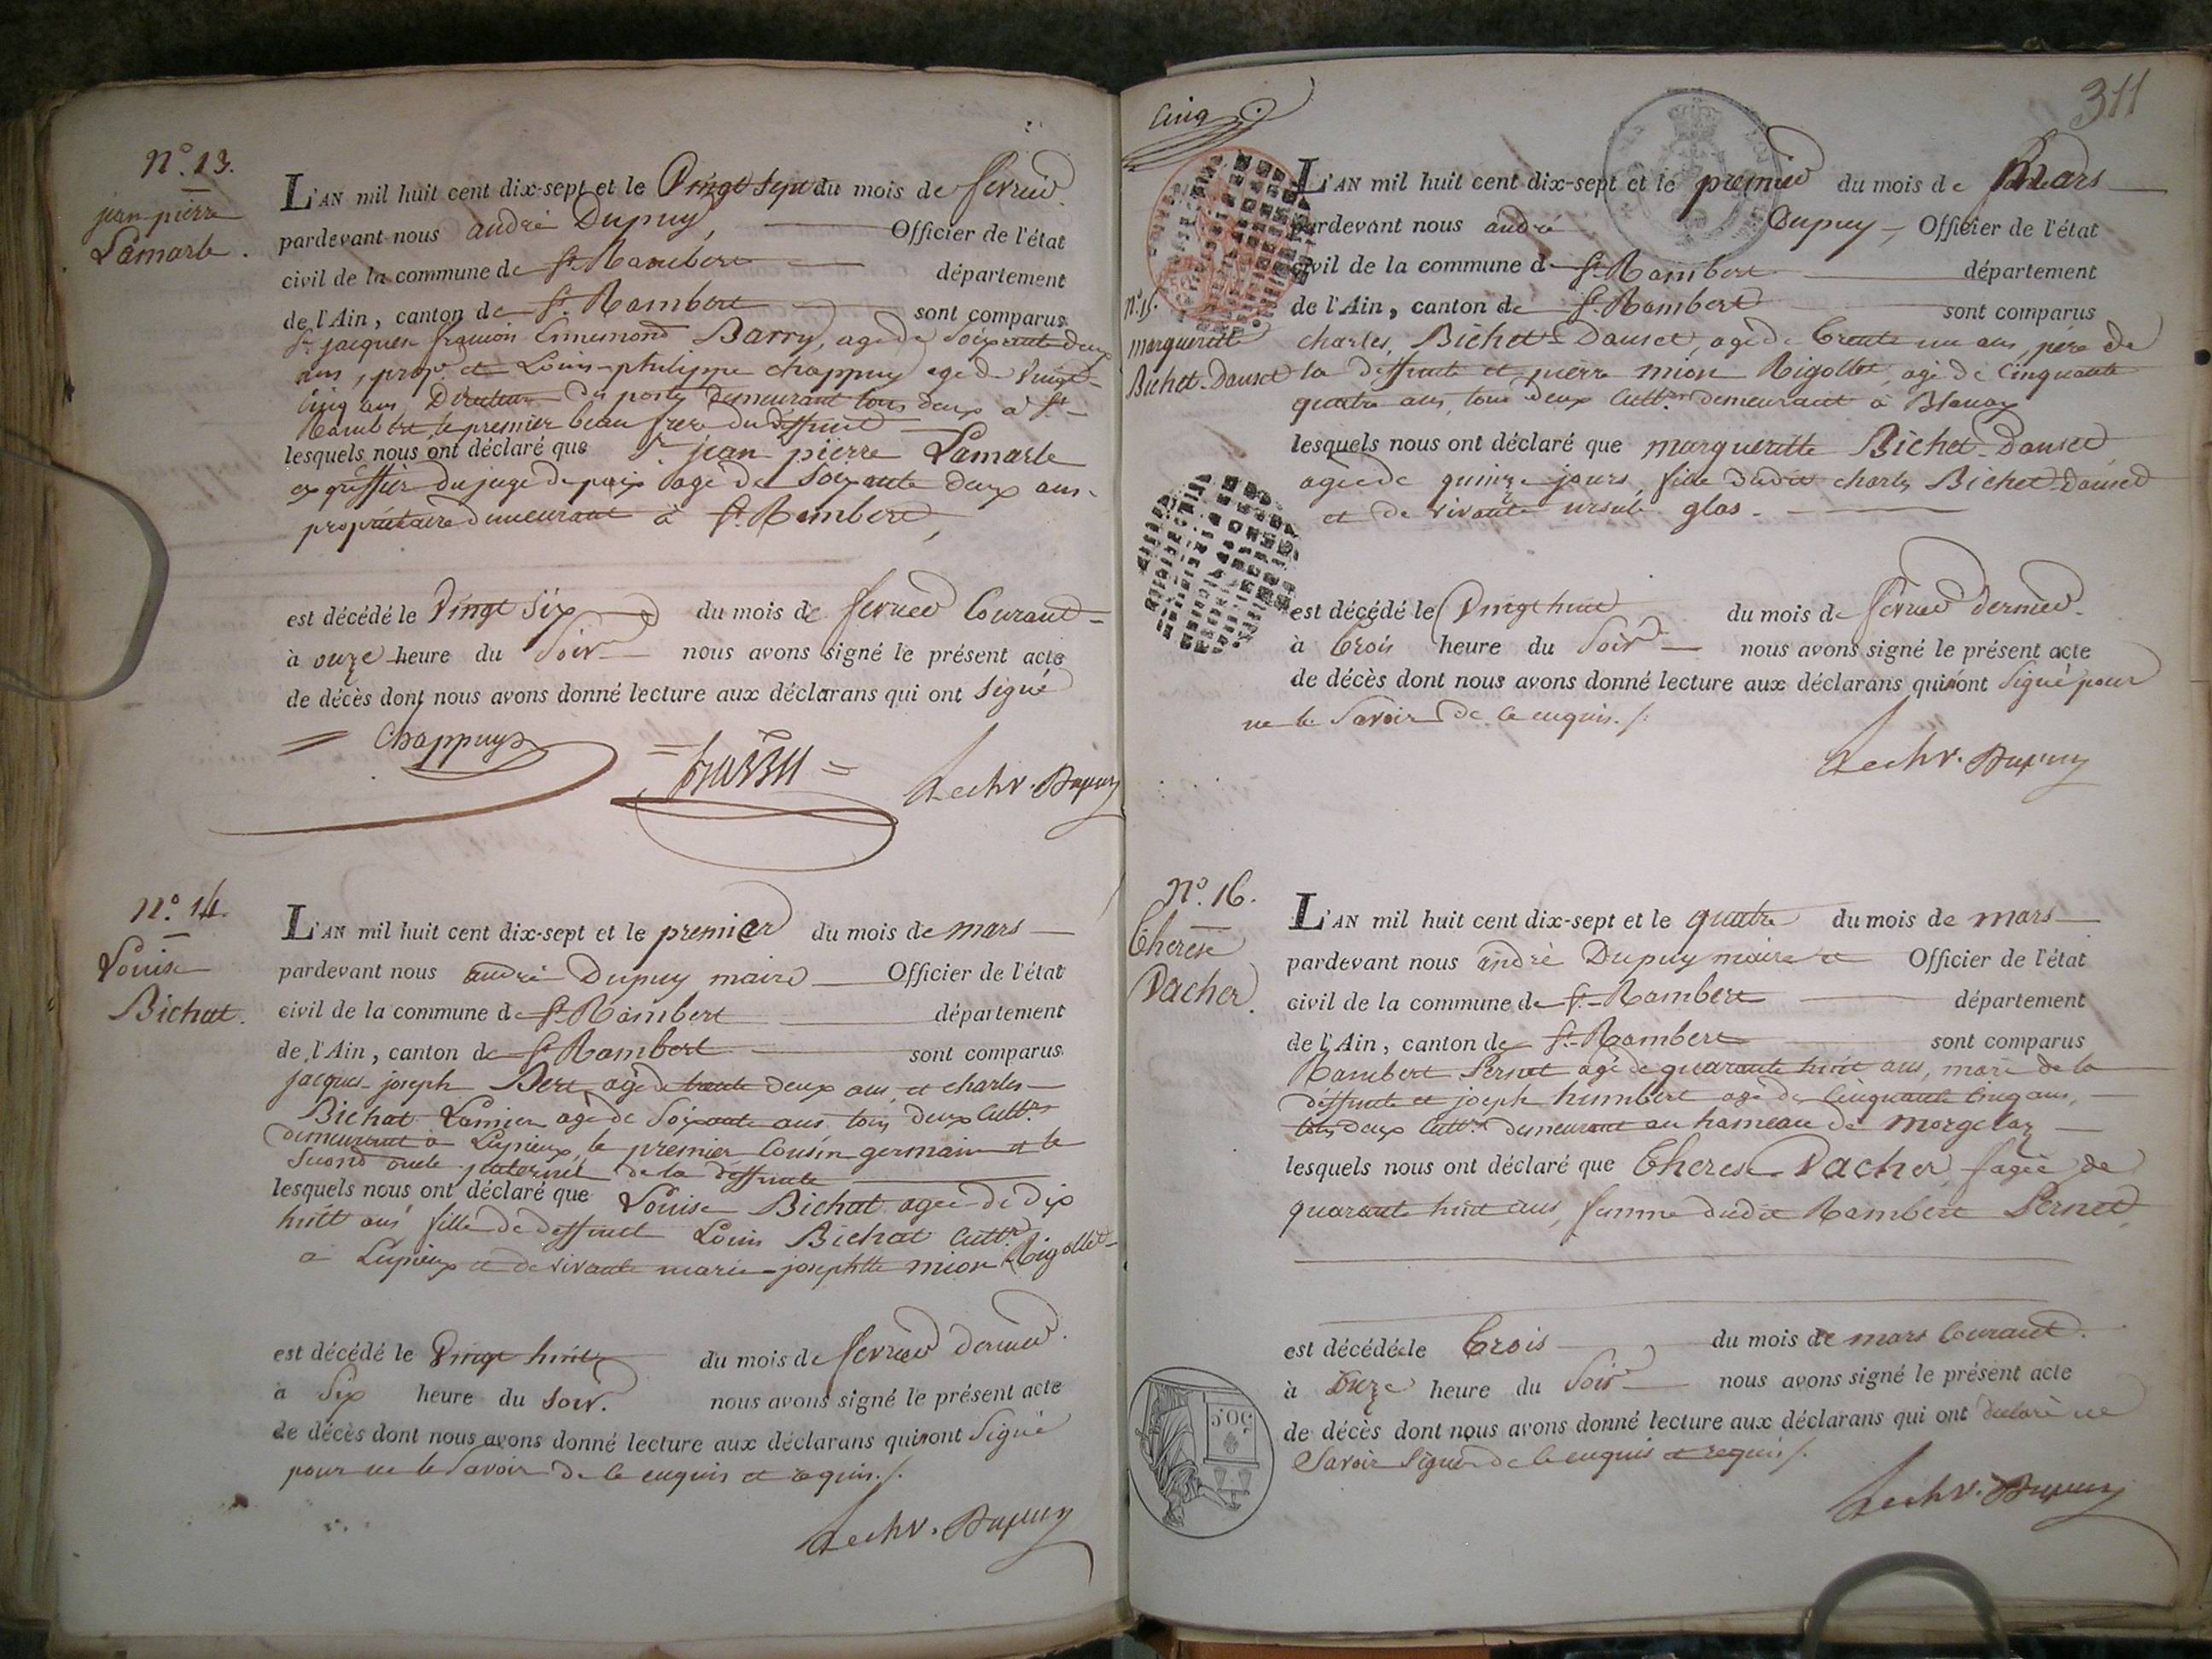 N.° 13.
jean-pierre
Lamarle.
L'AN mil huit cent dix-sept et le Vingt sept du mois de fevrier
pardevant nous andré Dupuy, Officier de l'état
civil de la commune de St Rambert département
de l'Ain, canton de St Rambert sont comparus
Sr jacques françois Emumond Barry, agé de Soixante deux
ans, propre et Louis-philippe chappuy agé de Vingt-
Cinq ans, Directeur des postes demeurant tous deux à St-
Rambert, le premier beau frere du deffunt
lesquels nous ont déclaré que Sr jean pierre Lamarle
ex greffier du juge de paix agé de Soixante deux ans.
propriétaire demeurant à St Rambert,
est décédé le Vingt Six du mois de fevrier Courant
à onze heure du Soir nous avons signé le présent acte
de décès dont nous avons donné lecture aux déclarans qui ont Signé
Chappuys
Lechv. Dupuy
N.° 14.
Louise
Bichat.
L'AN mil huit cent dix-sept et le premier du mois de mars
pardevant nous andré Dupuy maire Officier de l'état
civil de la commune de St Rambert département
de l'Ain, canton de St Rambert sont comparus
jacques-joseph Bert agé de trente deux ans, et charles
Bichat Lamier agé de Soixante ans tous deux Cultrs
demeurant à Lupieux, le premier Cousin germain et le
Second oncle paternel de la deffunte
lesquels nous ont déclaré que Louise Bichat agée de dix
huit ans fille de deffunct Louis Bichat Cultr
à Lupieux et de vivante marie-josephtte mion Rigollet
est décédé le Vingt huit du mois de fevrier dernier.
à Six heure du Soir. nous avons signé le présent acte
de décès dont nous avons donné lecture aux déclarans qui n'ont Signé
pour ne le Savoir de ce enquis et requis./.
Lechv. Dupuy
311
Cinq
N.° 15.
margueritte
Bichet-Dauset
L'AN mil huit cent dix-sept et le premier du mois de Mars
pardevant nous andré Dupuy, Officier de l'état
civil de la commune de St Rambert département
de l'Ain, canton de St Rambert sont comparus
charles, Bichet-Dauset, agé de trente un ans, père de
la deffunte et pierre mion Rigollet, agé de Cinquante
quatre ans, tous deux Cultrs demeurant à Blanaz
lesquels nous ont déclaré que margueritte Bichet-Dauset
agée de quinze jours, fille dudit charles Bichet-Dauset
et de vivante ursule glas.
est décédé le Vingt huit du mois de fevrier dernier.
à trois heure du Soir nous avons signé le présent acte
de décès dont nous avons donné lecture aux déclarans qui n'ont Signé pour
ne le Savoir de ce enquis./.
Lechv. Dupuy
N.° 16.
Therese
Vacher.
L'AN mil huit cent dix-sept et le quatre du mois de mars
pardevant nous andré Dupuy maire et Officier de l'état
civil de la commune de St Rambert département
de l'Ain, canton de St Rambert sont comparus
Rambert Pernet agé de quarante huit ans, mari de la
deffunte et joseph humbert agé de Cinquante Cinq ans,
tous deux Cultrs demeurant au hameau de morgelaz
lesquels nous ont déclaré que Therese Vacher, agée de
quarante huit ans, femme dudit Rambert Pernet,
est décédée le trois du mois de mars Courant.
à onze heure du Soir nous avons signé le présent acte
de décès dont nous avons donné lecture aux déclarans qui ont declaré ne
Savoir Signer de ce enquis et requis/.
50.C
Lechv. Dupuy